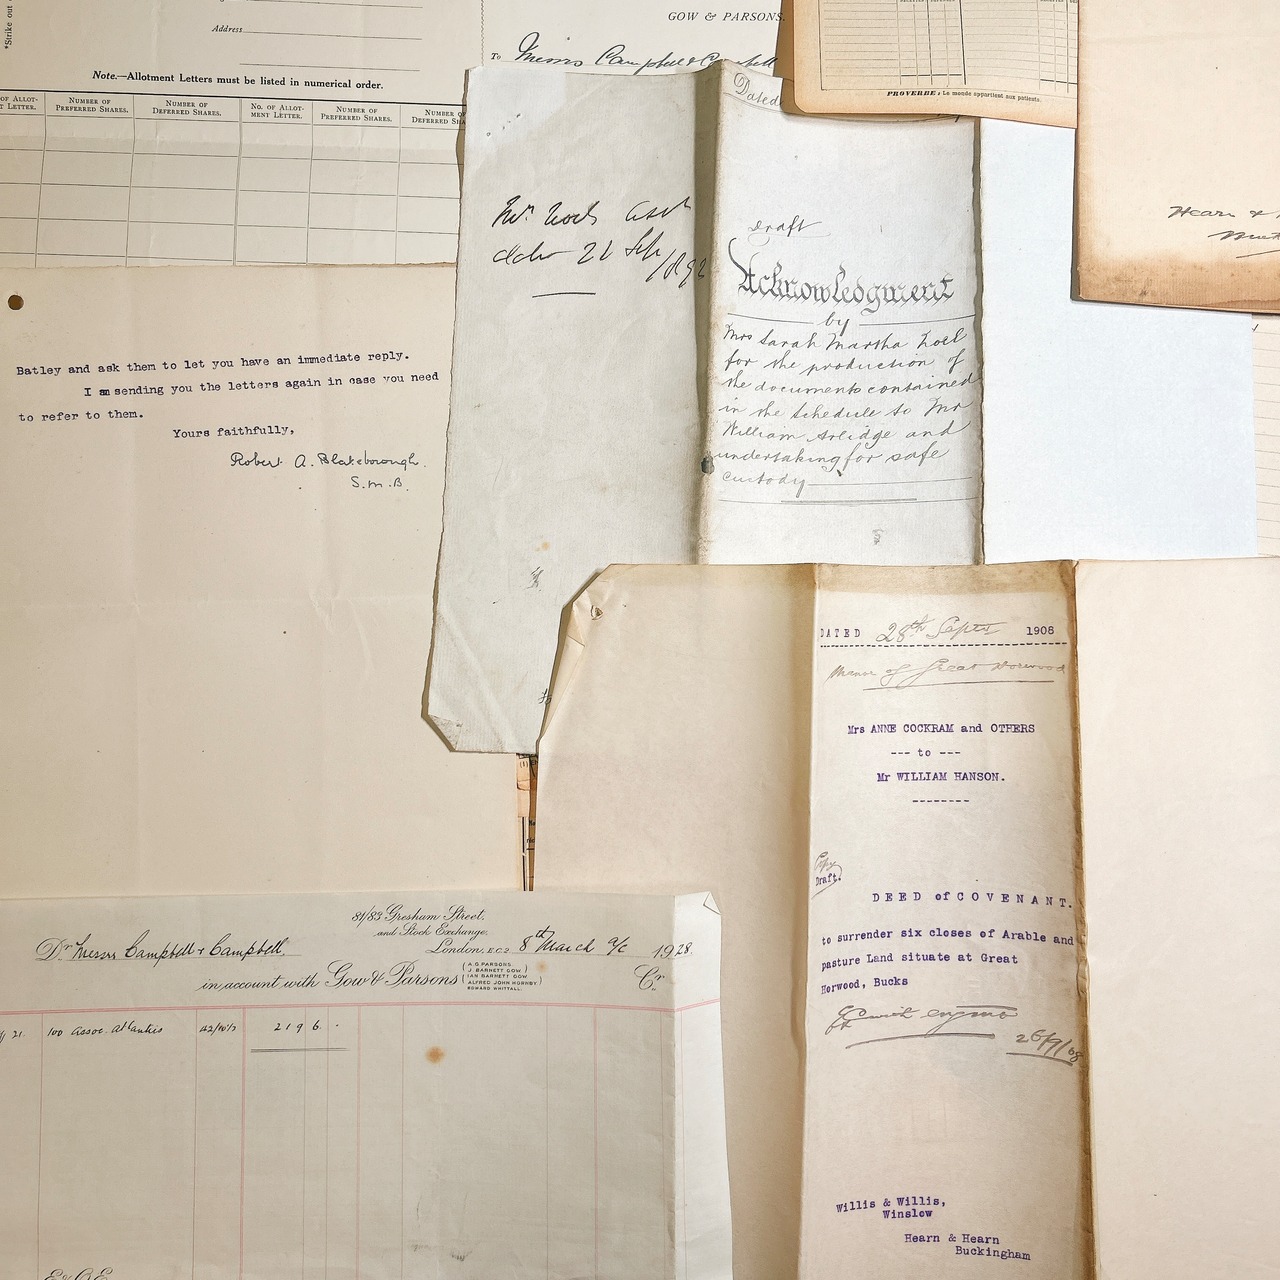 *Strike out
Address
Note.—Allotment Letters must be listed in numerical order.
OF ALLOT-
T LETTER.
NUMBER OF
PREFERRED SHARES.
NUMBER OF
DEFERRED SHARES.
NO. OF ALLOT-
MENT LETTER.
NUMBER OF
PREFERRED SHARES.
NUMBER OF
DEFERRED SHA
GOW & PARSONS.
To Messrs Campbell & Campbell
PROVERBE: Le monde appartient aux patients.
Hearn &
Batley and ask them to let you have an immediate reply.
I am sending you the letters again in case you need
to refer to them.
Yours faithfully,
Robert A. Blakeborough.
S.M.B.
21 Sep
1892
Dated
Draft
Acknowledgment
by
Mrs Sarah Martha Noel
for the production of
the documents contained
in the Schedule to Mr
William Arlidge and
undertaking for safe
custody
DATED 28th Septr 1908
Manor of Great Horwood
Mrs ANNE COCKRAM and OTHERS
--- to ---
Mr WILLIAM HANSON.
--------
Copy
Draft.
DEED of COVENANT.
to surrender six closes of Arable and
pasture Land situate at Great
Horwood, Bucks
26/9/08
Willis & Willis,
Winslow
Hearn & Hearn
Buckingham
81/83 Gresham Street,
and Stock Exchange,
London, E.C.2 8th March a/c 1928.
Dr Messrs Campbell & Campbell
in account with Gow & Parsons
A.G. PARSONS.
J. BARNETT GOW
IAN BARNETT GOW
ALFRED JOHN HORNBY
EDWARD WHITTALL.
Cr
21. 100 Assoc. Atlantics 42/10½ 219 6 .
E & O.E.